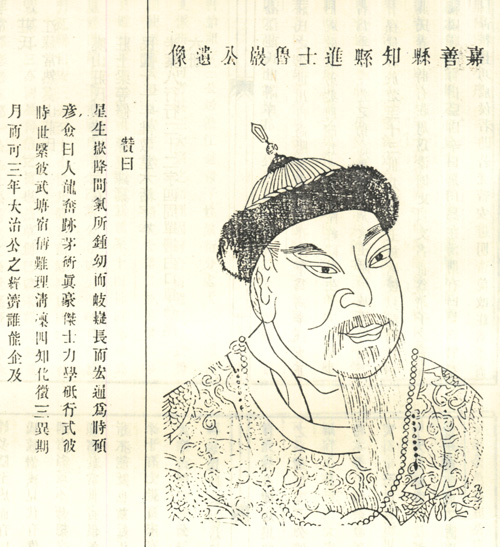 嘉善縣知縣進士魯巖公遺像
贊曰
星生嶽降間氣所鍾幼而岐嶷長而宏通爲時碩
彥僉曰人龍奮跡茅衡眞豪傑士力學砥行式彼
時世繄彼武塘宿偁難理清凜四知化徵三異期
月而可三年大治公之經濟誰能企及